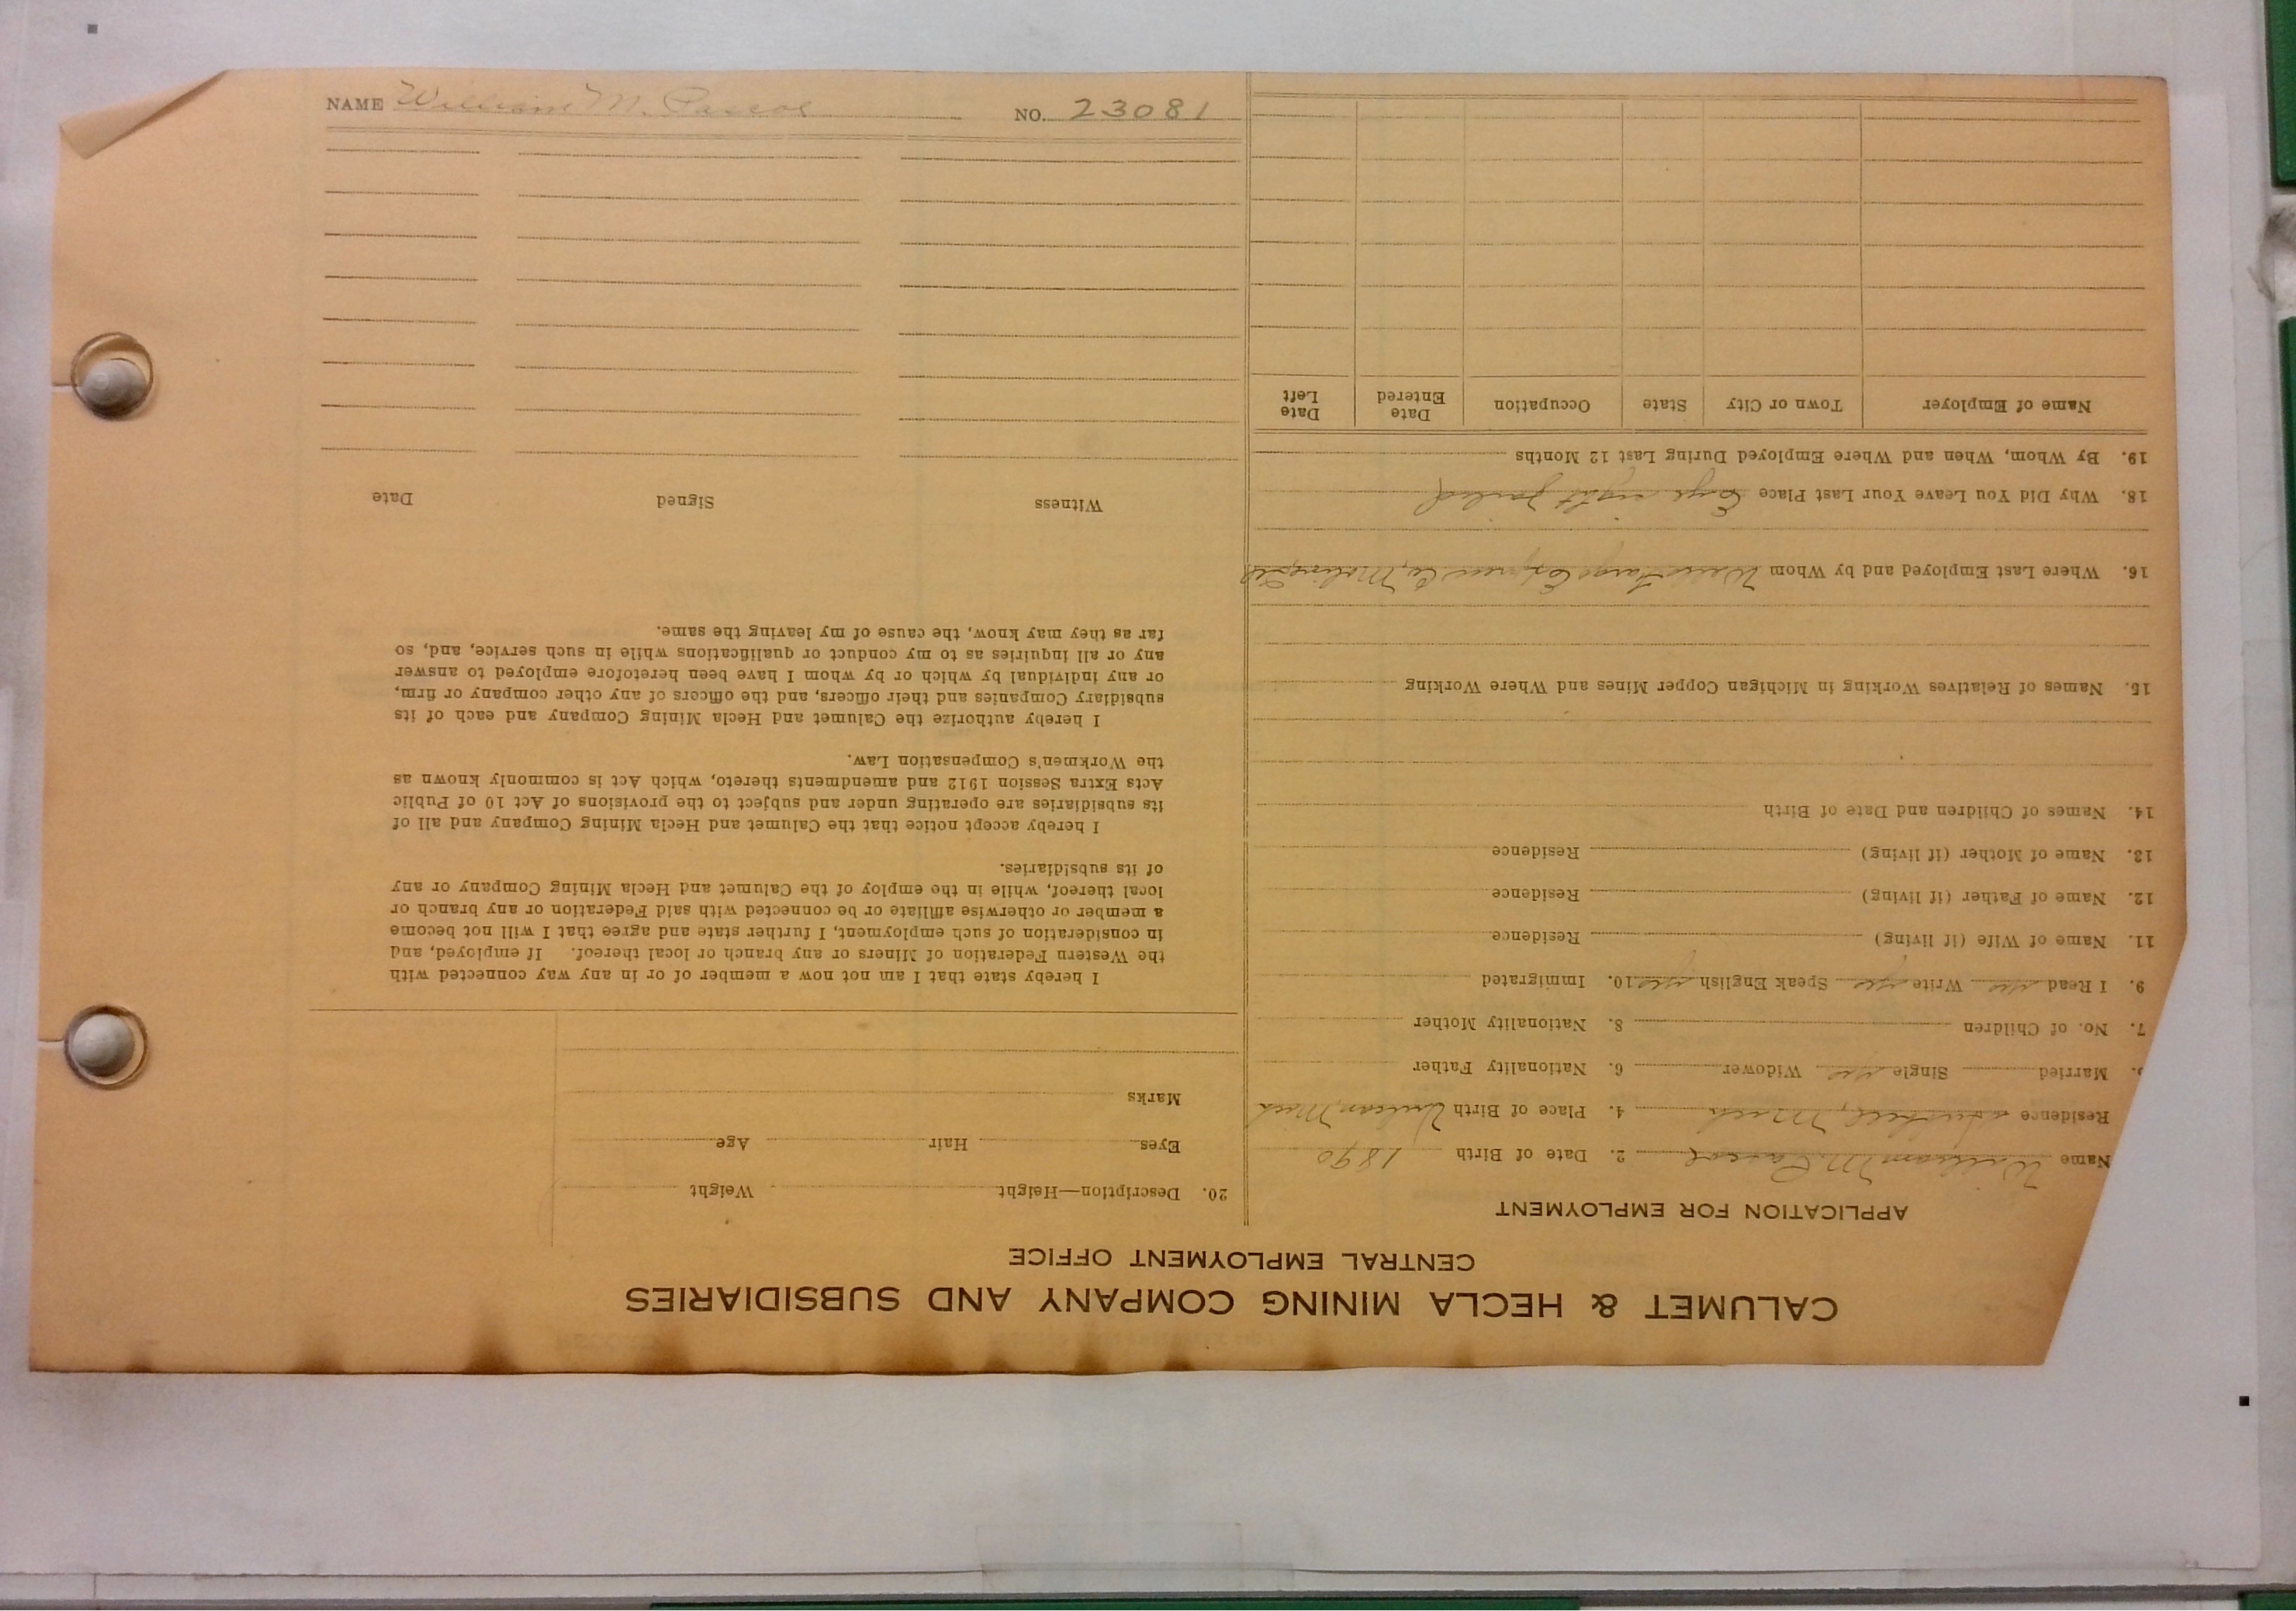 NAME William M. Pascoe NO. 23081
CALUMET & HECLA MINING COMPANY AND SUBSIDIARIES
CENTRAL EMPLOYMENT OFFICE
APPLICATION FOR EMPLOYMENT
Name William M. Pascoe 2. Date of Birth 1890
Residence Mich 4. Place of Birth Vulcan, Mich
Married Single yes Widower 6. Nationality Father
7. No. of Children 8. Nationality Mother
9. I Read yes Write yes Speak English yes 10. Immigrated
11. Name of Wife (if living) Residence
12. Name of Father (if living) Residence
13. Name of Mother (if living) Residence
14. Names of Children and Date of Birth
15. Names of Relatives Working in Michigan Copper Mines and Where Working
16. Where Last Employed and by Whom Wells Fargo Express Co, Moline, Ill
18. Why Did You Leave Your Last Place Eye sight failed
19. By Whom, When and Where Employed During Last 12 Months
Name of Employer Town or City State Occupation Date Entered Date Left
20. Description—Height Weight
Eyes Hair Age
Marks
I hereby state that I am not now a member of or in any way connected with
the Western Federation of Miners or any branch or local thereof. If employed, and
in consideration of such employment, I further state and agree that I will not become
a member or otherwise affiliate or be connected with said Federation or any branch or
local thereof, while in the employ of the Calumet and Hecla Mining Company or any
of its subsidiaries.
I hereby accept notice that the Calumet and Hecla Mining Company and all of
its subsidiaries are operating under and subject to the provisions of Act 10 of Public
Acts Extra Session 1912 and amendments thereto, which Act is commonly known as
the Workmen's Compensation Law.
I hereby authorize the Calumet and Hecla Mining Company and each of its
subsidiary Companies and their officers, and the officers of any other company or firm,
or any individual by which or by whom I have been heretofore employed to answer
any or all inquiries as to my conduct or qualifications while in such service, and, so
far as they may know, the cause of my leaving the same.
Witness Signed Date